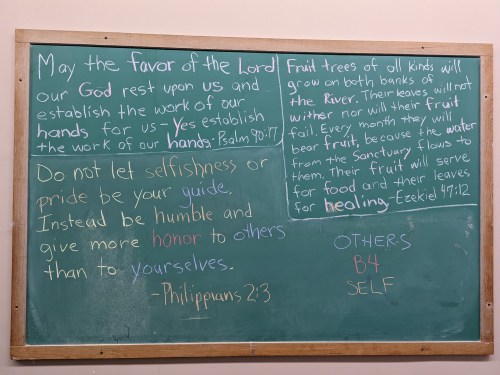 May the favor of the Lord
our God rest upon us and
establish the work of our
hands for us - Yes establish
the work of our hands. Psalm 90:17
Fruit trees of all kinds will
grow on both banks of
the River. Their leaves will not
wither nor will their fruit
fail. Every month they will
bear fruit, because the water
from the Sanctuary flows to
them. Their fruit will serve
for food and their leaves
for healing - Ezekiel 47:12
Do not let selfishness or
pride be your guide.
Instead be humble and
give more honor to others
than to yourselves.
- Philippians 2:3
OTHERS
B4
SELF